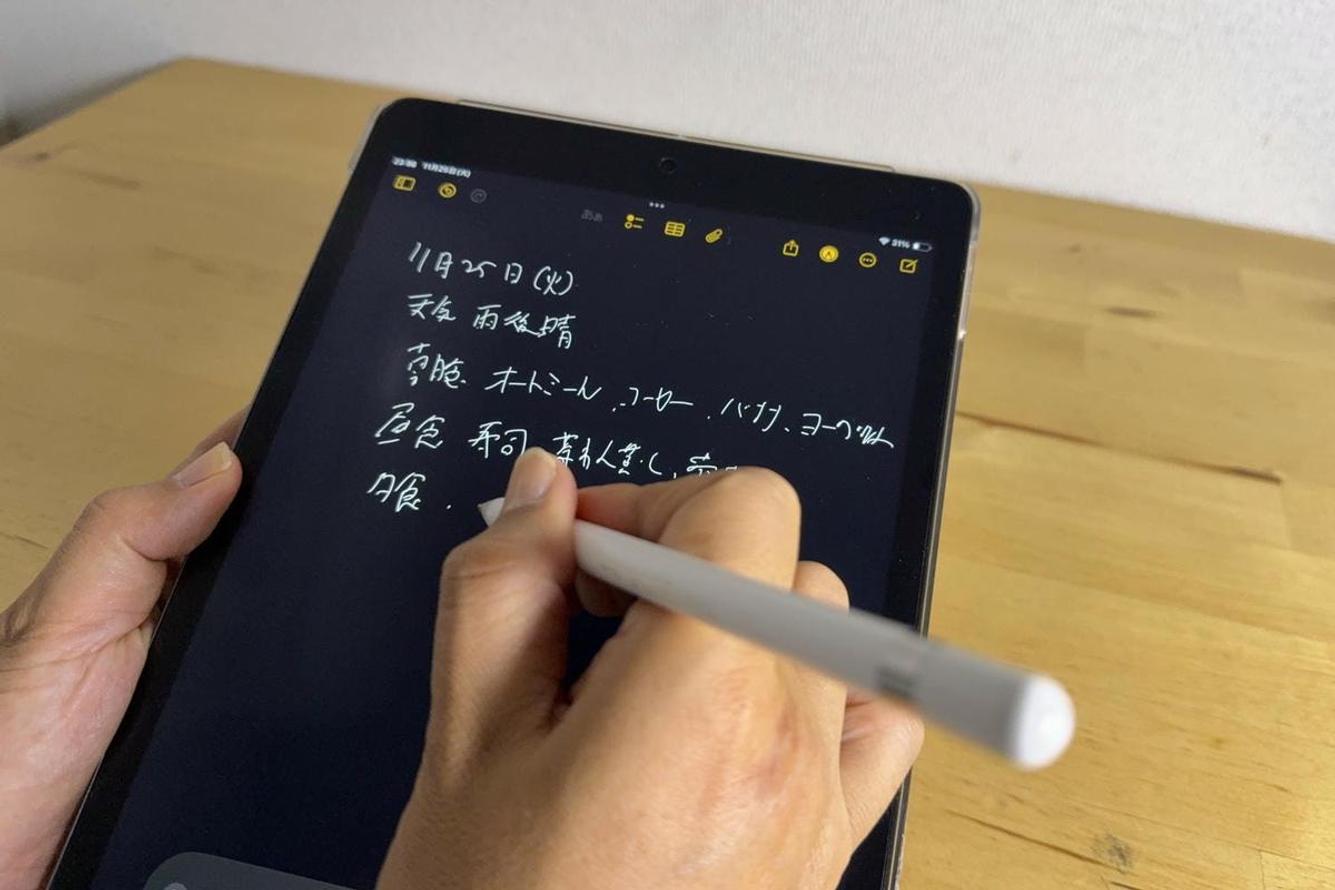 11月25日(火)
31%
11月25日(火)
天気 雨後晴
朝食 オートミール、コーヒー、バナナ、ヨーグルト
昼食 寿司 茶わん蒸し、
夕食